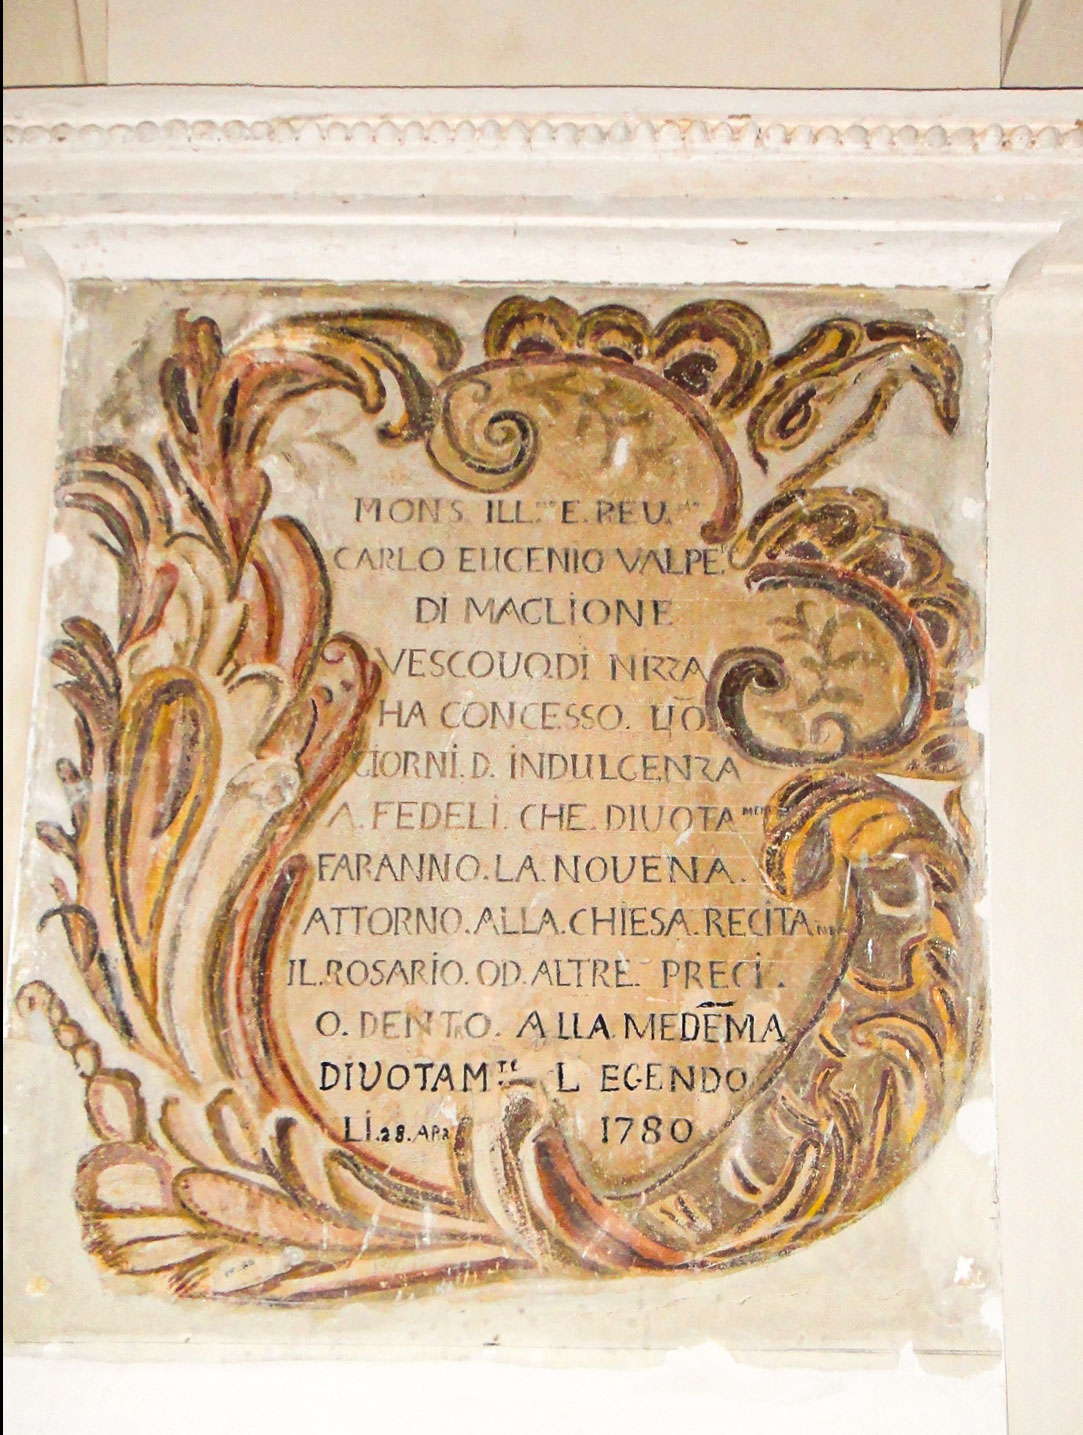 MONS ILL.ᵐᵒ E. REU.ᵐᵒ
CARLO EUGENIO VALPEᵃ
DI MAGLIONE
VESCOUO.DI NIZZA
HA CONCESSO. 40
GIORNI.D. INDULGENZA
A. FEDELI. CHE. DIUOTAᴹᴱᴺ
FARANNO.LA.NOUENA.
ATTORNO.ALLA.CHIESA.RECITAᴺᴰᴼ
IL.ROSARIO.OD.ALTRE. PRECI.
O. DENTRO. ALLA MEDE̅MA
DIUOTAMᵀᴱ LEGENDO
LI.28.APR 1780